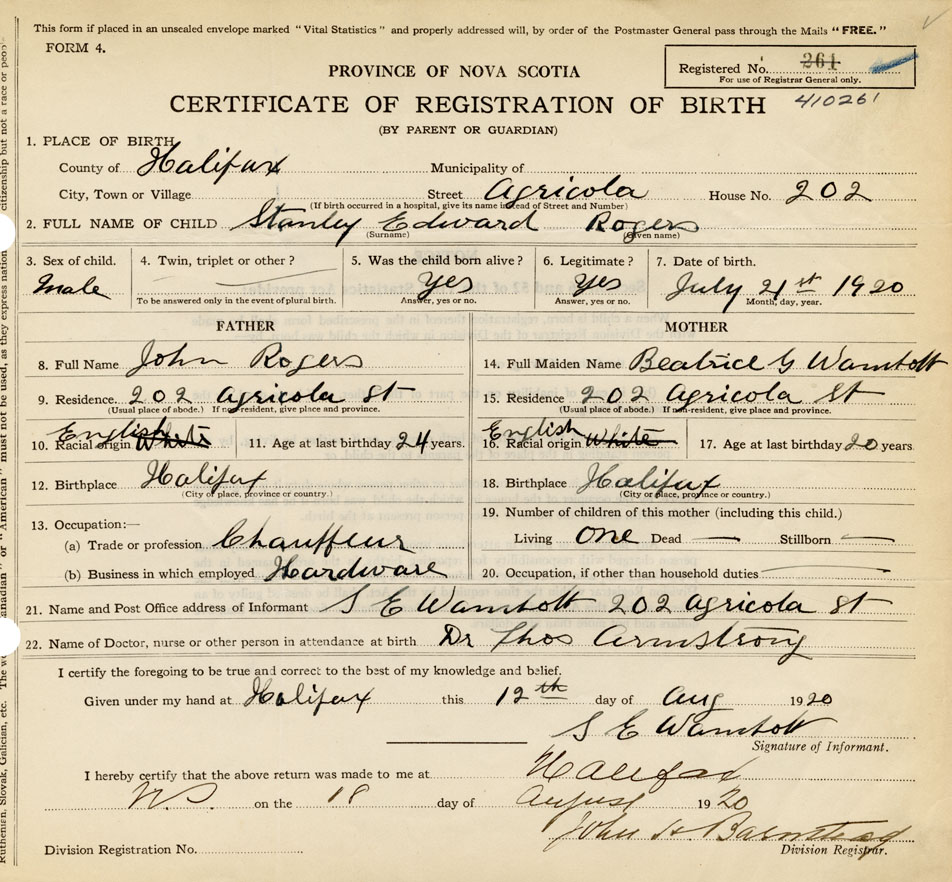 This form if placed in an unsealed envelope marked "Vital Statistics" and properly addressed will, by order of the Postmaster General pass through the Mails "FREE."
FORM 4.
Registered No. 261
For use of Registrar General only.
PROVINCE OF NOVA SCOTIA
CERTIFICATE OF REGISTRATION OF BIRTH
410261
(BY PARENT OR GUARDIAN)
1. PLACE OF BIRTH
County of Halifax Municipality of
City, Town or Village Street Agricola House No. 202
(If birth occurred in a hospital, give its name instead of Street and Number)
2. FULL NAME OF CHILD Stanley Edward Rogers
(Surname) (Given name)
3. Sex of child. 4. Twin, triplet or other? 5. Was the child born alive? 6. Legitimate? 7. Date of birth.
Male Yes Yes July 21st 1920
To be answered only in the event of plural birth. Answer, yes or no. Answer, yes or no. Month, day, year.
FATHER MOTHER
8. Full Name John Rogers 14. Full Maiden Name Beatrice G Wambolt
9. Residence 202 Agricola St 15. Residence 202 Agricola St
(Usual place of abode.) If non-resident, give place and province. (Usual place of abode.) If non-resident, give place and province.
English English
10. Racial origin White 11. Age at last birthday 24 years. 16. Racial origin White 17. Age at last birthday 20 years
12. Birthplace Halifax 18. Birthplace Halifax
(City or place, province or country.) (City or place, province or country.)
13. Occupation:— 19. Number of children of this mother (including this child.)
(a) Trade or profession Chauffeur Living One Dead — Stillborn —
(b) Business in which employed Hardware 20. Occupation, if other than household duties
21. Name and Post Office address of Informant S E Wambolt 202 Agricola St
22. Name of Doctor, nurse or other person in attendance at birth Dr Thos Armstrong
I certify the foregoing to be true and correct to the best of my knowledge and belief.
Given under my hand at Halifax this 12th day of Aug 1920
S E Wambolt
Signature of Informant.
I hereby certify that the above return was made to me at Halifax
N.S. on the 18 day of August 1920
John H Barnstead
Division Registration No. Division Registrar.